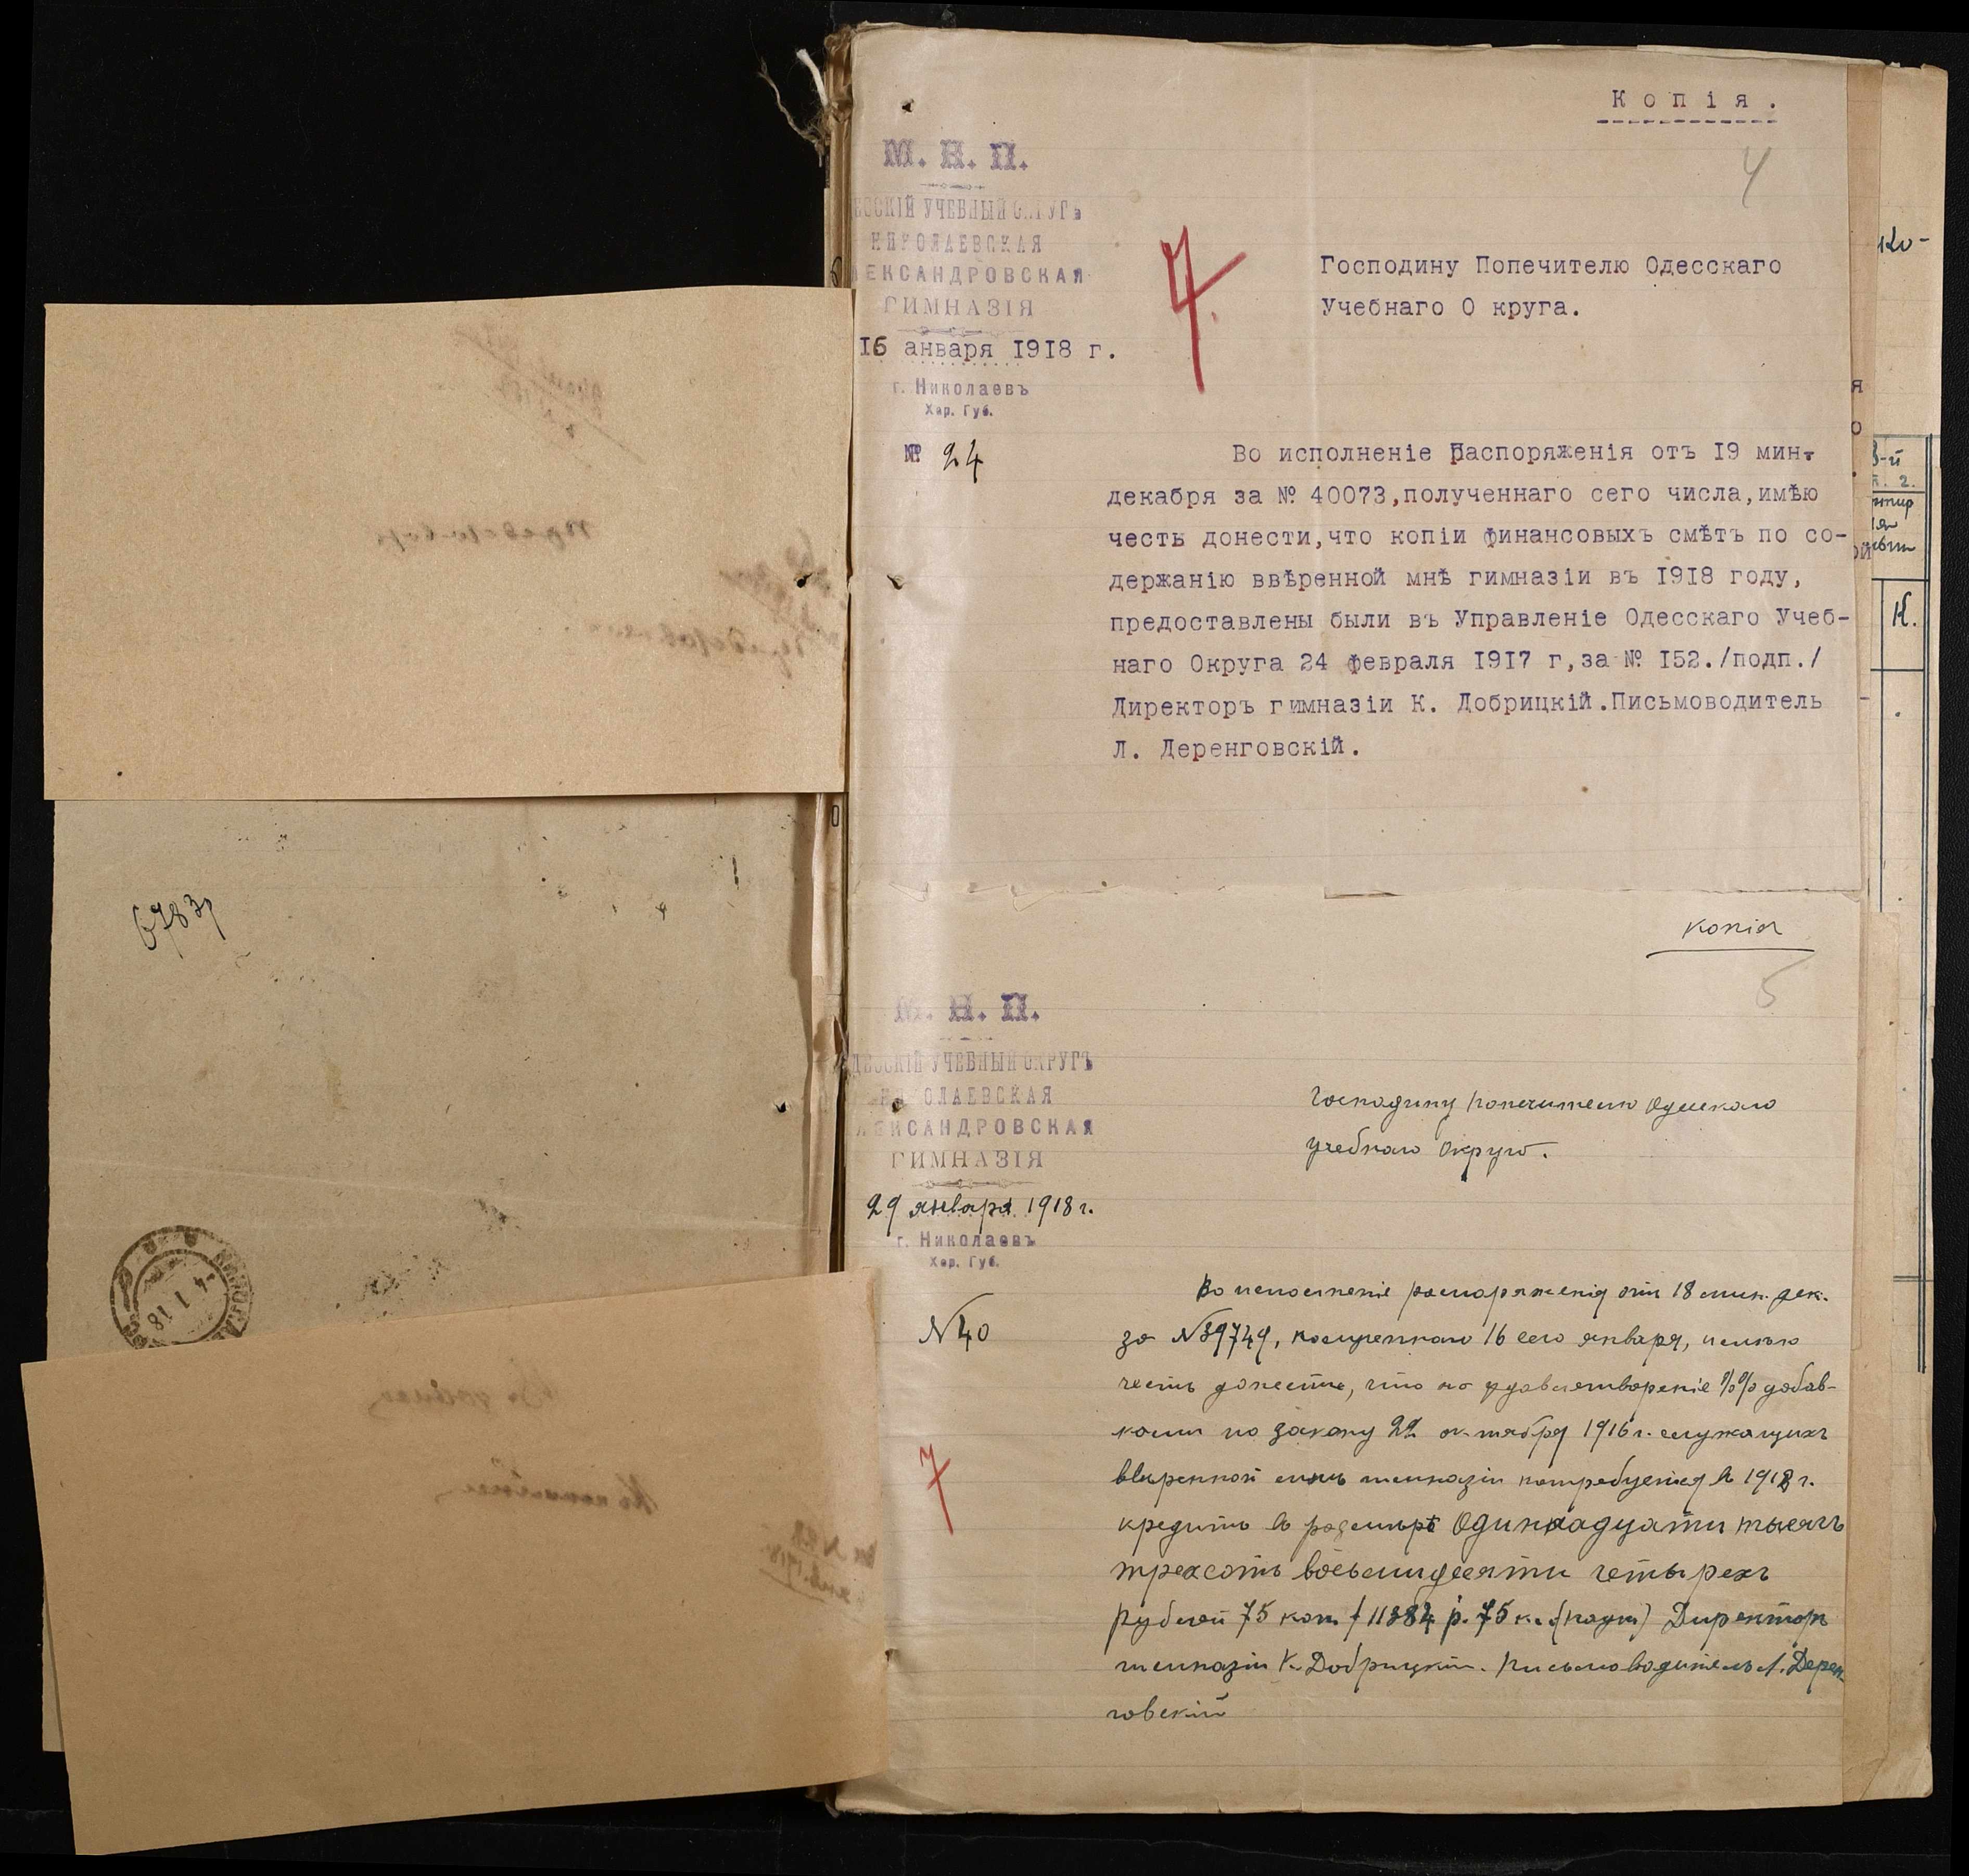 Копія.
4
М. Н. П.
ЕССКІЙ УЧЕБНЫЙ ОКРУГЪ
НИКОЛАЕВСКАЯ
ЛЕКСАНДРОВСКАЯ
ГИМНАЗІЯ
16 января 1918 г.
г. Николаевъ
Хер. Губ.
№ 24
7.
Господину Попечителю Одесскаго
Учебнаго О круга.
Во исполненіе Распоряженія отъ 19 мин.
декабря за № 40073,полученнаго сего числа,имѣю
честь донести,что копіи финансовыхъ смѣтъ по со-
держанію ввѣренной мнѣ гимназіи въ 1918 году,
предоставлены были въ Управленіе Одесскаго Учеб-
наго Округа 24 февраля 1917 г,за № 152./подп./
Директоръ гимназіи К. Добрицкій.Письмоводитель
Л. Деренговскій.
копія
5
М. Н. П.
ДЕССКІЙ УЧЕБНЫЙ ОКРУГЪ
НИКОЛАЕВСКАЯ
ЛЕКСАНДРОВСКАЯ
ГИМНАЗІЯ
29 января 1918 г.
г. Николаевъ
Хер. Губ.
№ 40
7
Господину Попечителю Одесскаго
учебнаго Округа.
Во исполненіе распоряженія отъ 18 мин. дек.
за № 39749, полученнаго 16 сего января, имѣю
честь донести, что на удовлетвореніе %% добав-
ками по закону 22 октября 1916 г. служащихъ
ввѣренной мнѣ гимназіи потребуется въ 1918 г.
кредитъ въ размѣрѣ Одиннадцати тысячъ
трехсотъ восьмидесяти четырехъ
рублей 75 коп. / 11384 р. 75 к. (подп) Директоръ
гимназіи К. Добрицкій. Письмоводитель Л. Дерен-
говскій
18
К.